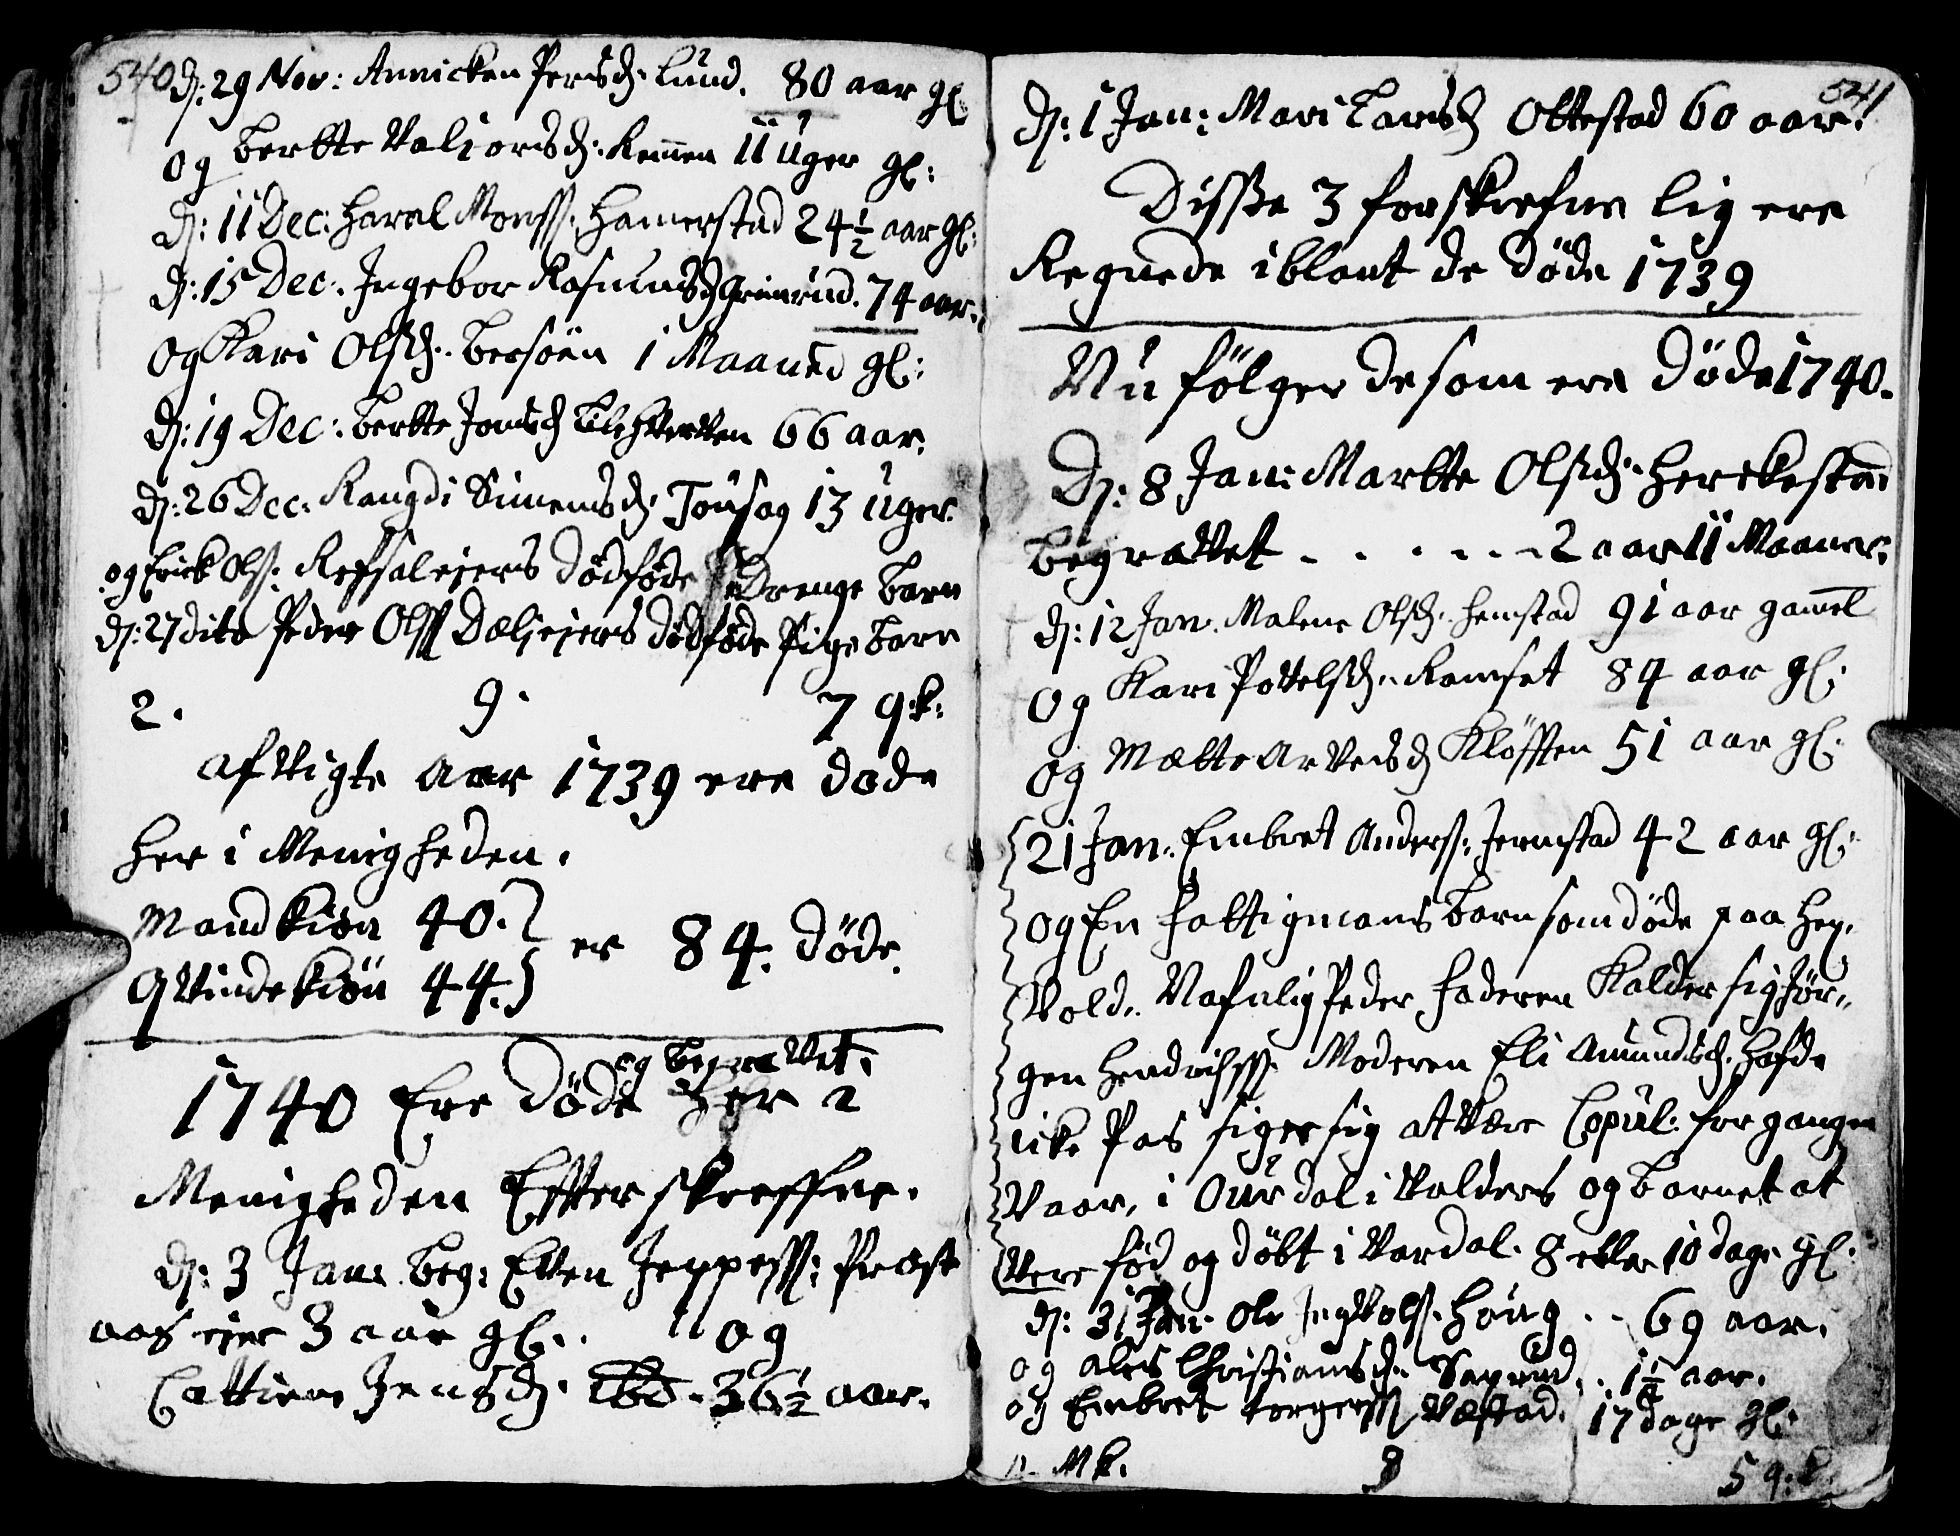 540
d: 29 Nov: Annicken Persd: Lund. 80 aar gl:
og Bertte Haljorsd: Remmen 11 Uger gl:
d: 11 Dec: Haral Monss: Hamerstad 24 1/2 aar gl:
d: 15 Dec: Ingebor Rasmusd Grimrud. 74 aar.
og Kari Olsd: Bersöen 1 Maaned gl:
d: 19 Dec: Bertte Jonsd 66 aar.
d: 26 Dec: Rangdi Simensd: Tousag 13 Uger
og Erick Olss: Refsaleiers dödföde Drenge Barn
d: 27 dito Peder Olss Dæljeiers dödföde Pige Barn
2. 9. 7 q:k:
afvigte aar 1739 ere dode
her i Menigheden.
Mandkiön 40.
er 84. döde.
Qvindekiön 44.
og begravet.
1740 Ere döde her i
Menigheden Efterskrefne.
d: 3 Jan: beg: Even Jeppess: Prost
aas eier 3 aar gl: og
Cattrine Jensd: ibd. 36 1/2 aar.
541
d: 1 Jan: Mari Larsd Ottestad 60 aar.
Disse 3 forskrefne lig ere
Regnede iblant de döde 1739
Nu fölger de som ere döde 1740.
d: 8 Jan: Martte Olsd: Herckestad
begravet - . . . . - 2 aar 11 Maaner:
d: 12 Jan. Malene Olsd: Hemstad 91 aar gamel
og Kari Povelsd: Ramset 84 aar gl:
og Mætte Arvesd Klöfften 51 aar gl:
21 Jan: Embret Anderss: Jernstad 42 aar gl:
og En Fattigmans Barn som döde paa Hey-
vold. Nafnlig Peder Faderen Kalder sig Jör-
gen Hendrichss: Moderen Eli Amundsd: Hafde
icke Pas siger sig at være Copul: forgangen
Vaar, i Ourdal i Valders og Barnet at
være föd og döbt i Vardal. 8 eller 10 dage gl:
d: 31 Jan: Ole Ingvolss: Houg . . 69 aar.
og Ales Christiansd: . . 1 1/2 aar.
og Embret Torgerss Næstad. 17 dage gl:
Mk. 8 5 q:k: